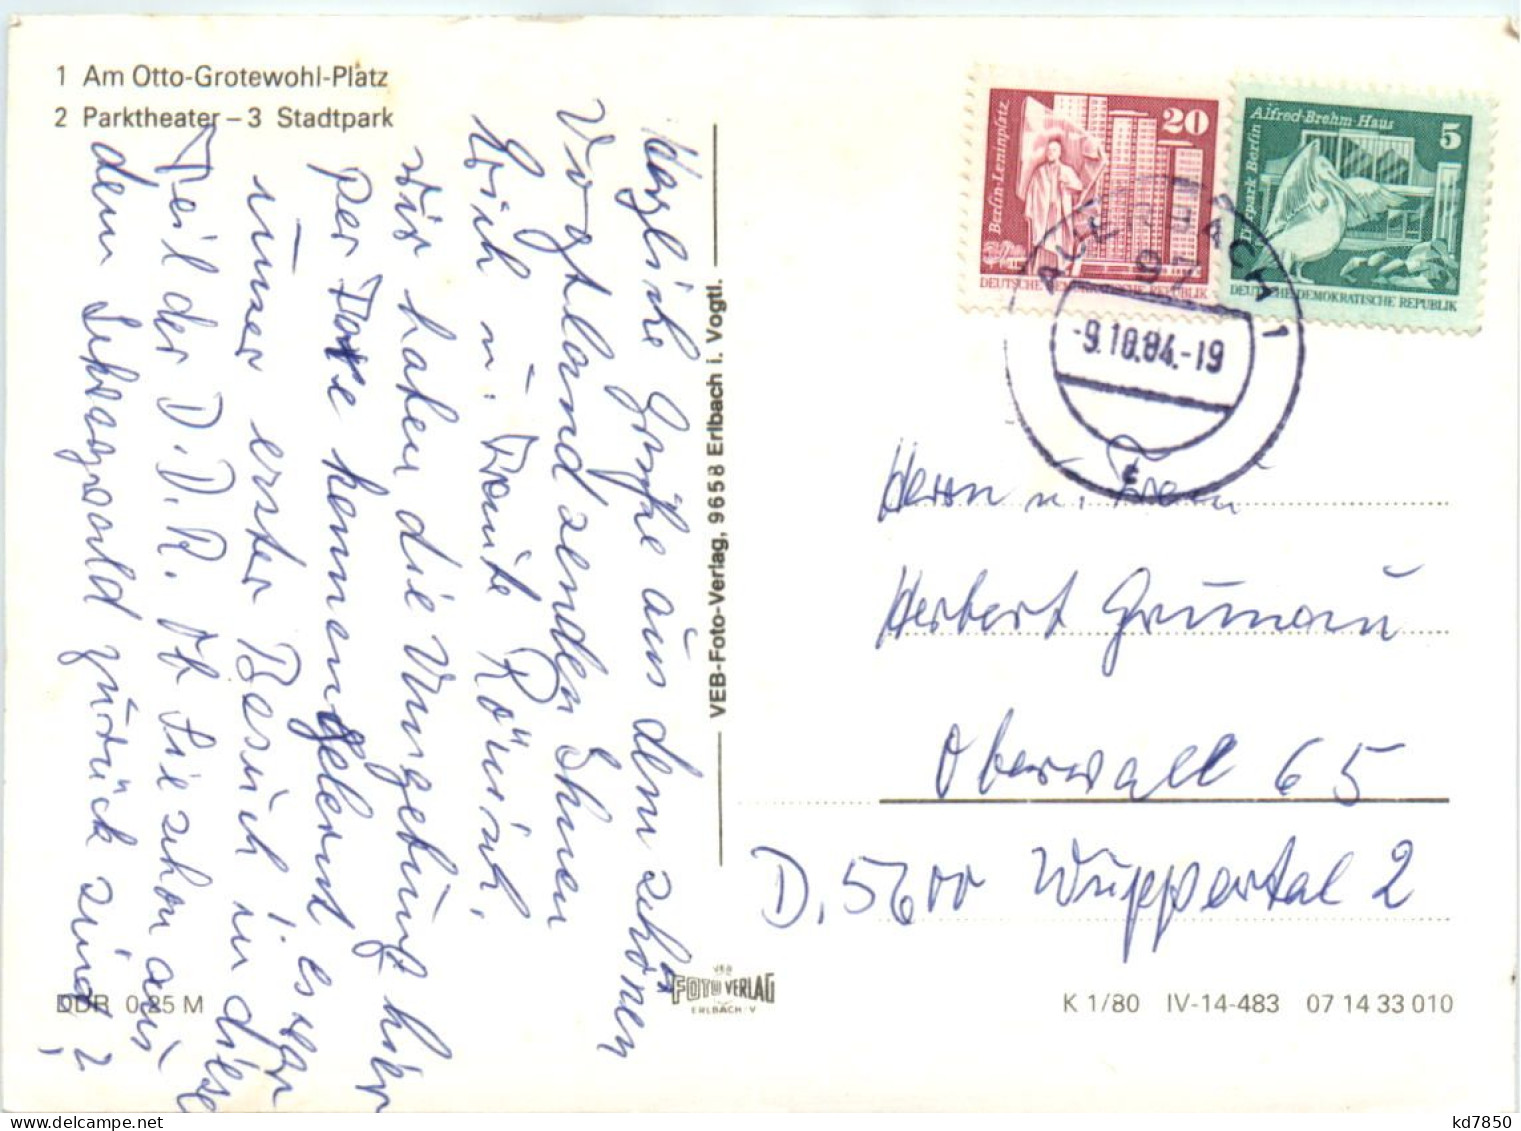 1 Am Otto-Grotewohl-Platz
2 Parktheater – 3 Stadtpark
Herzliche Grüße aus dem schönen
Vogtland senden Ihnen
Erich u. Traute Römisch.
Wir haben die Umgebung hier
per kennengelernt, es ist
unser erster Besuch in diese
Teil der D.D.R. Ob Sie schon aus
dem Schwarzwald zurück sind?
VEB-Foto-Verlag, 9658 Erlbach i. Vogtl.
DDR 0,25 M
VEB
FOTO VERLAG
ERLBACH·V
Berlin-Leninplatz
20
DEUTSCHE DEMOKRATISCHE REPUBLIK
Alfred-Brehm-Haus
Tierpark Berlin
5
DEUTSCHE DEMOKRATISCHE REPUBLIK
AUERBACH 1
-9.10.84.-19
c
Herrn u. Frau
Herbert Grünau
Oberwall 65
D. 5600 Wuppertal 2
K 1/80 IV-14-483 07 14 33 010
kd7850